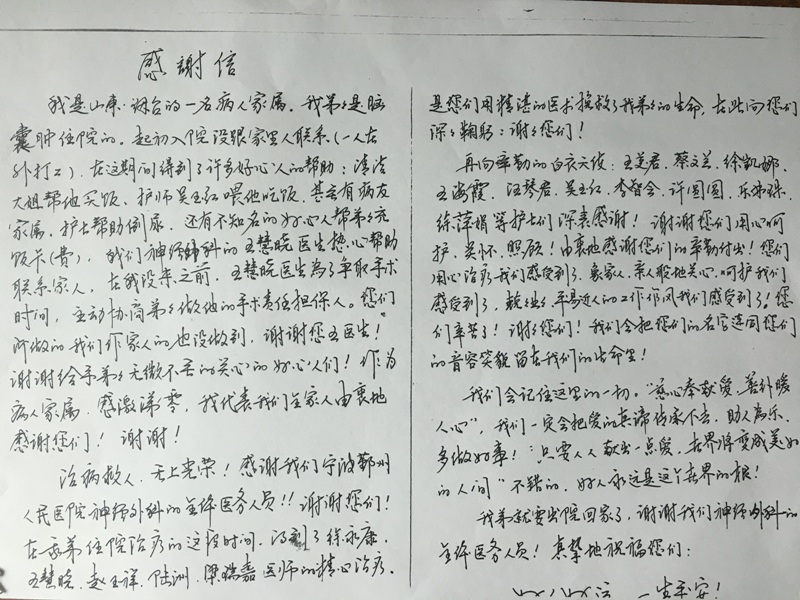 感謝信
我是山东·烟台的一名病人家属，我弟弟是脑
囊肿住院的。起初入院没跟家里人联系（一人在
外打工），在这期间得到了许多好心人的帮助：清洁
大姐帮他买饭，护师吴玉红喂他吃饭，甚至有病友
家属，护士帮助倒尿，还有不知名的好心人帮弟弟充
饭卡（费），我们神经外科的王慧晓医生热心帮助
联系家人，在我没来之前，王慧晓医生为了争取手术
时间，主动协商弟弟做他的手术责任担保人。您们
所做的我们作家人的也没做到，谢谢您王医生！
谢谢给予弟弟无微不至的关心的好心人们！作为
病人家属，感激涕零，我代表我们全家人由衷地
感谢您们！谢谢！
治病救人，无上光荣！感谢我们宁波鄞州
人民医院神经外科的全体医务人员！！谢谢您们！
在我弟住院治疗的这段时间，得到了徐永康，
王慧晓，赵玉祥，陆洲，梁瑞嘉医师的精心治疗，
是您们用精湛的医术挽救了我弟弟的生命，在此向您们
深深鞠躬：谢谢您们！
再向辛勤的白衣天使：王美君，蔡文兰，徐凯娜，
王海霞，汪琴君，吴玉红，李智会，许圆圆，乐弟珠，
徐萍娟等护士们深表感谢！谢谢您们用心呵
护，关怀，照顾！由衷地感谢您们的辛勤付出！您们
用心治疗我们感受到了，象家人，亲人般地关心，呵护我们
感受到了，兢兢业业，平易近人的工作作风我们感受到了！您
们辛苦了！谢谢您们！我们会把您们的名字连同您们
的音容笑貌留在我们的生命里！
我们会记住这里的一切。“慈心奉献爱，善行暖
人心”，我们一定会把爱的真谛传承下去，助人为乐，
多做好事！“只要人人献出一点爱，世界将变成美好
的人间”不错的，好人永远是这个世界的根！
我弟就要出院回家了，谢谢我们神经外科的
全体医务人员！真挚地祝福您们：
一生平安！